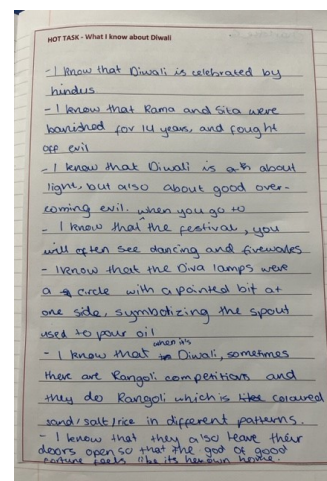 HOT TASK - What I know about Diwali
- I know that Diwali is celebrated by
hindus
- I know that Rama and Sita were
banished for 14 years, and fought
off evil
- I know that Diwali is about
light, but also about good over-
coming evil. when you go to
- I know that the festival, you
will often see dancing and fireworks
- I know that the Diva lamps were
a circle with a pointed bit at
one side, symbolizing the spout
used to pour oil
when it's
- I know that Diwali, sometimes
there are Rangoli competitions and
they do Rangoli which is coloured
sand/salt/rice in different patterns.
- I know that they also leave their
doors open so that the god of good
fortune feels like its her own home.